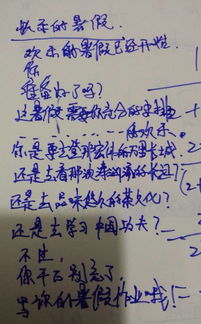 欢乐的暑假
欢乐的暑假已经开始
你
准备好了吗?
这暑假需要你充分的
的欢乐。
你是要去
万里长城
还是去看那波涛汹涌的长江?
还是去品味悠久的茶文化?
还是去学习中国功夫?
不过,
你千万别忘了,
写你的暑假作业哦!